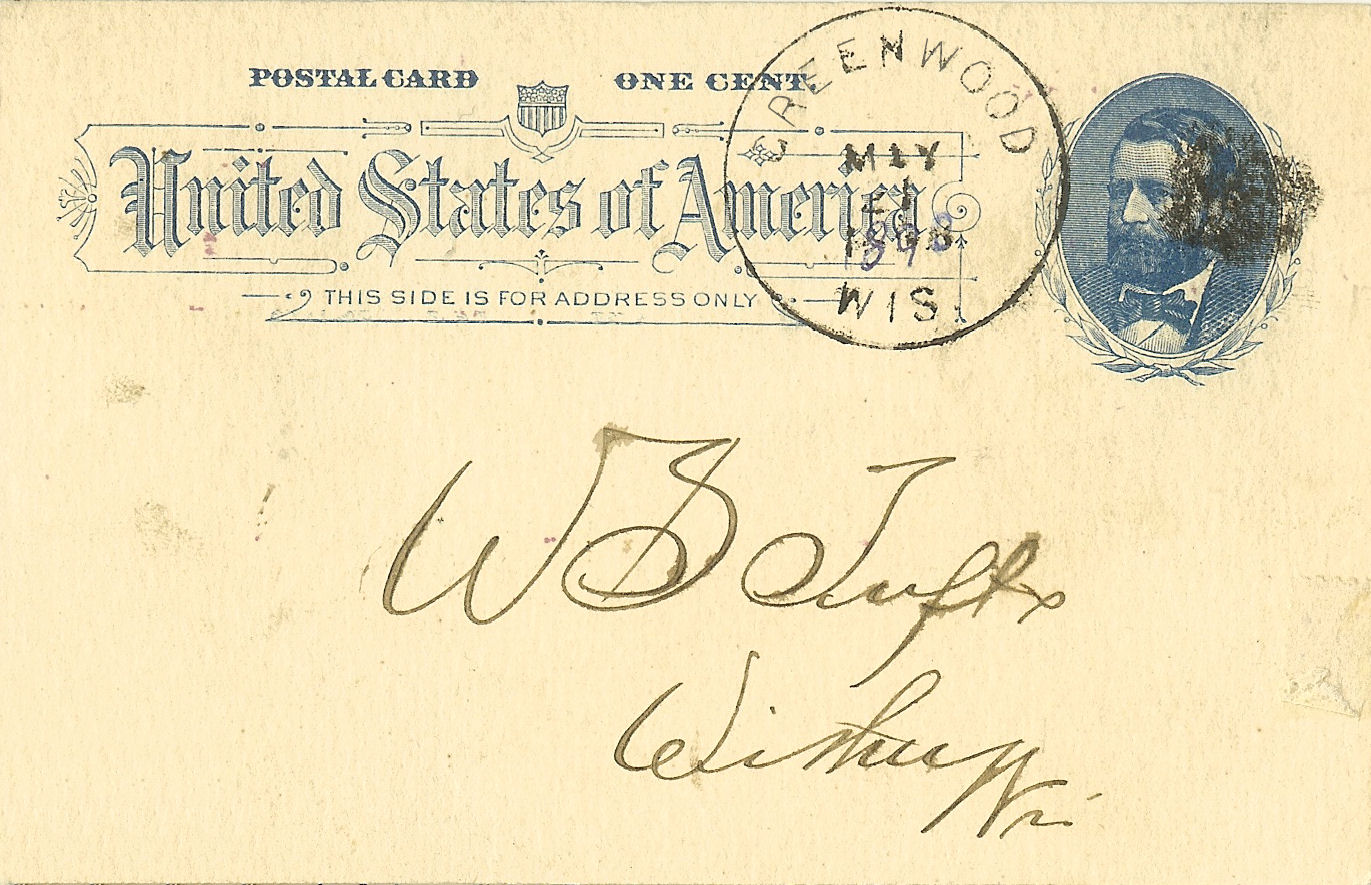 POSTAL CARD ONE CENT
United States of America
THIS SIDE IS FOR ADDRESS ONLY
GREENWOOD
WIS.
W B Tufts
Wis